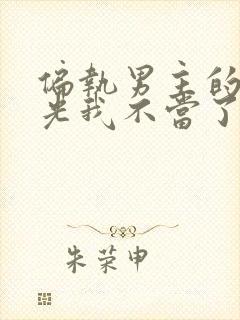 偏執男主的
光我不當了
朱荣申